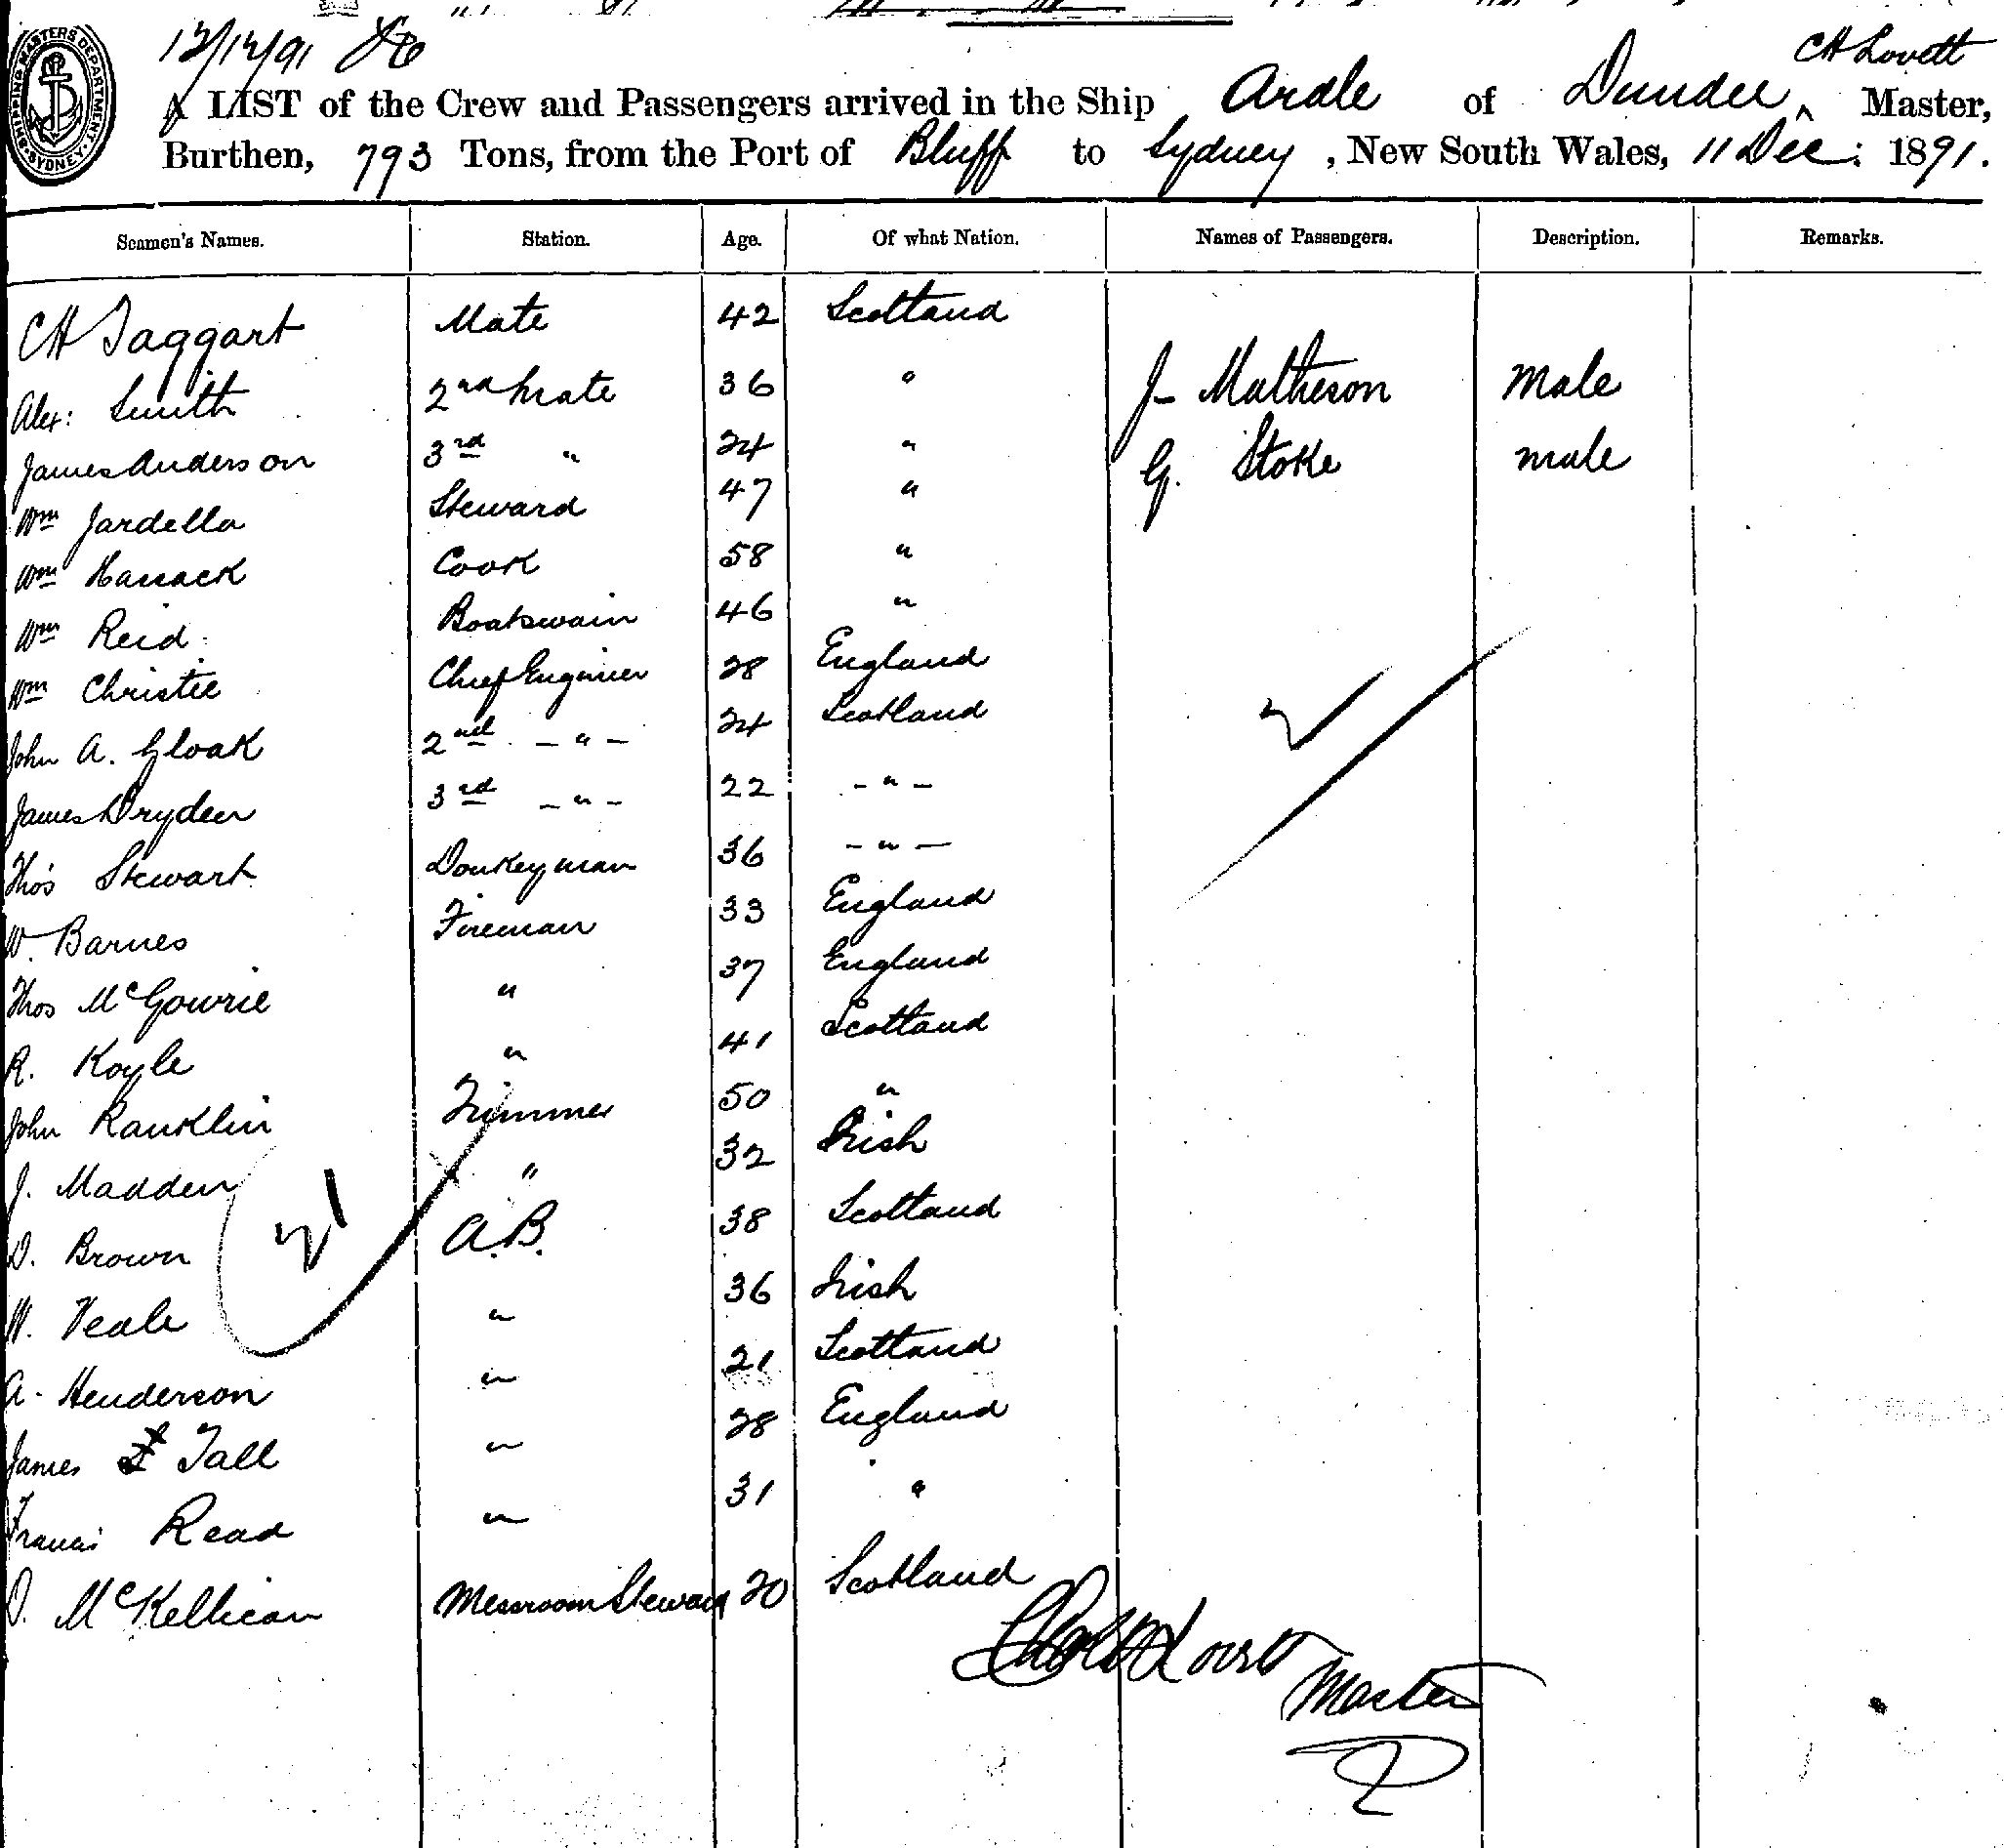 12/12/91
SHIPPING MASTERS DEPARTMENT SYDNEY
CH Lovett
A LIST of the Crew and Passengers arrived in the Ship Ardle of Dundee ^ Master,
Burthen, 793 Tons, from the Port of Bluff to Sydney, New South Wales, 11 Dec: 1891.
Seamen's Names. Station. Age. Of what Nation. Names of Passengers. Description. Remarks.
CH Taggart Mate 42 Scotland
Alex: Smith 2nd Mate 36 " J- Matheson male
James Anderson 3rd " 24 " G. Stoke male
Wm Jardella Steward 47 "
Wm Hassack Cook 58 "
Wm Reid Boatswain 46 "
Wm Christie Chief Engineer 28 England
John A. Gloak 2nd - " - 24 Scotland
James Dryden 3rd - " - 22 - " -
Thos Stewart Donkeyman 36 - " -
W. Barnes Fireman 33 England
Thos McGowrie " 37 England
R. Koyle " 41 Scotland
John Ranklin Trimmer 50 "
J. Madden " 32 Irish
D. Brown A.B. 38 Scotland
W. Veale " 36 Irish
A. Henderson " 21 Scotland
James Tall " 28 England
Francis Read " 31 "
D. McKellican Messroom Steward 20 Scotland
Chas H Lovett
Master